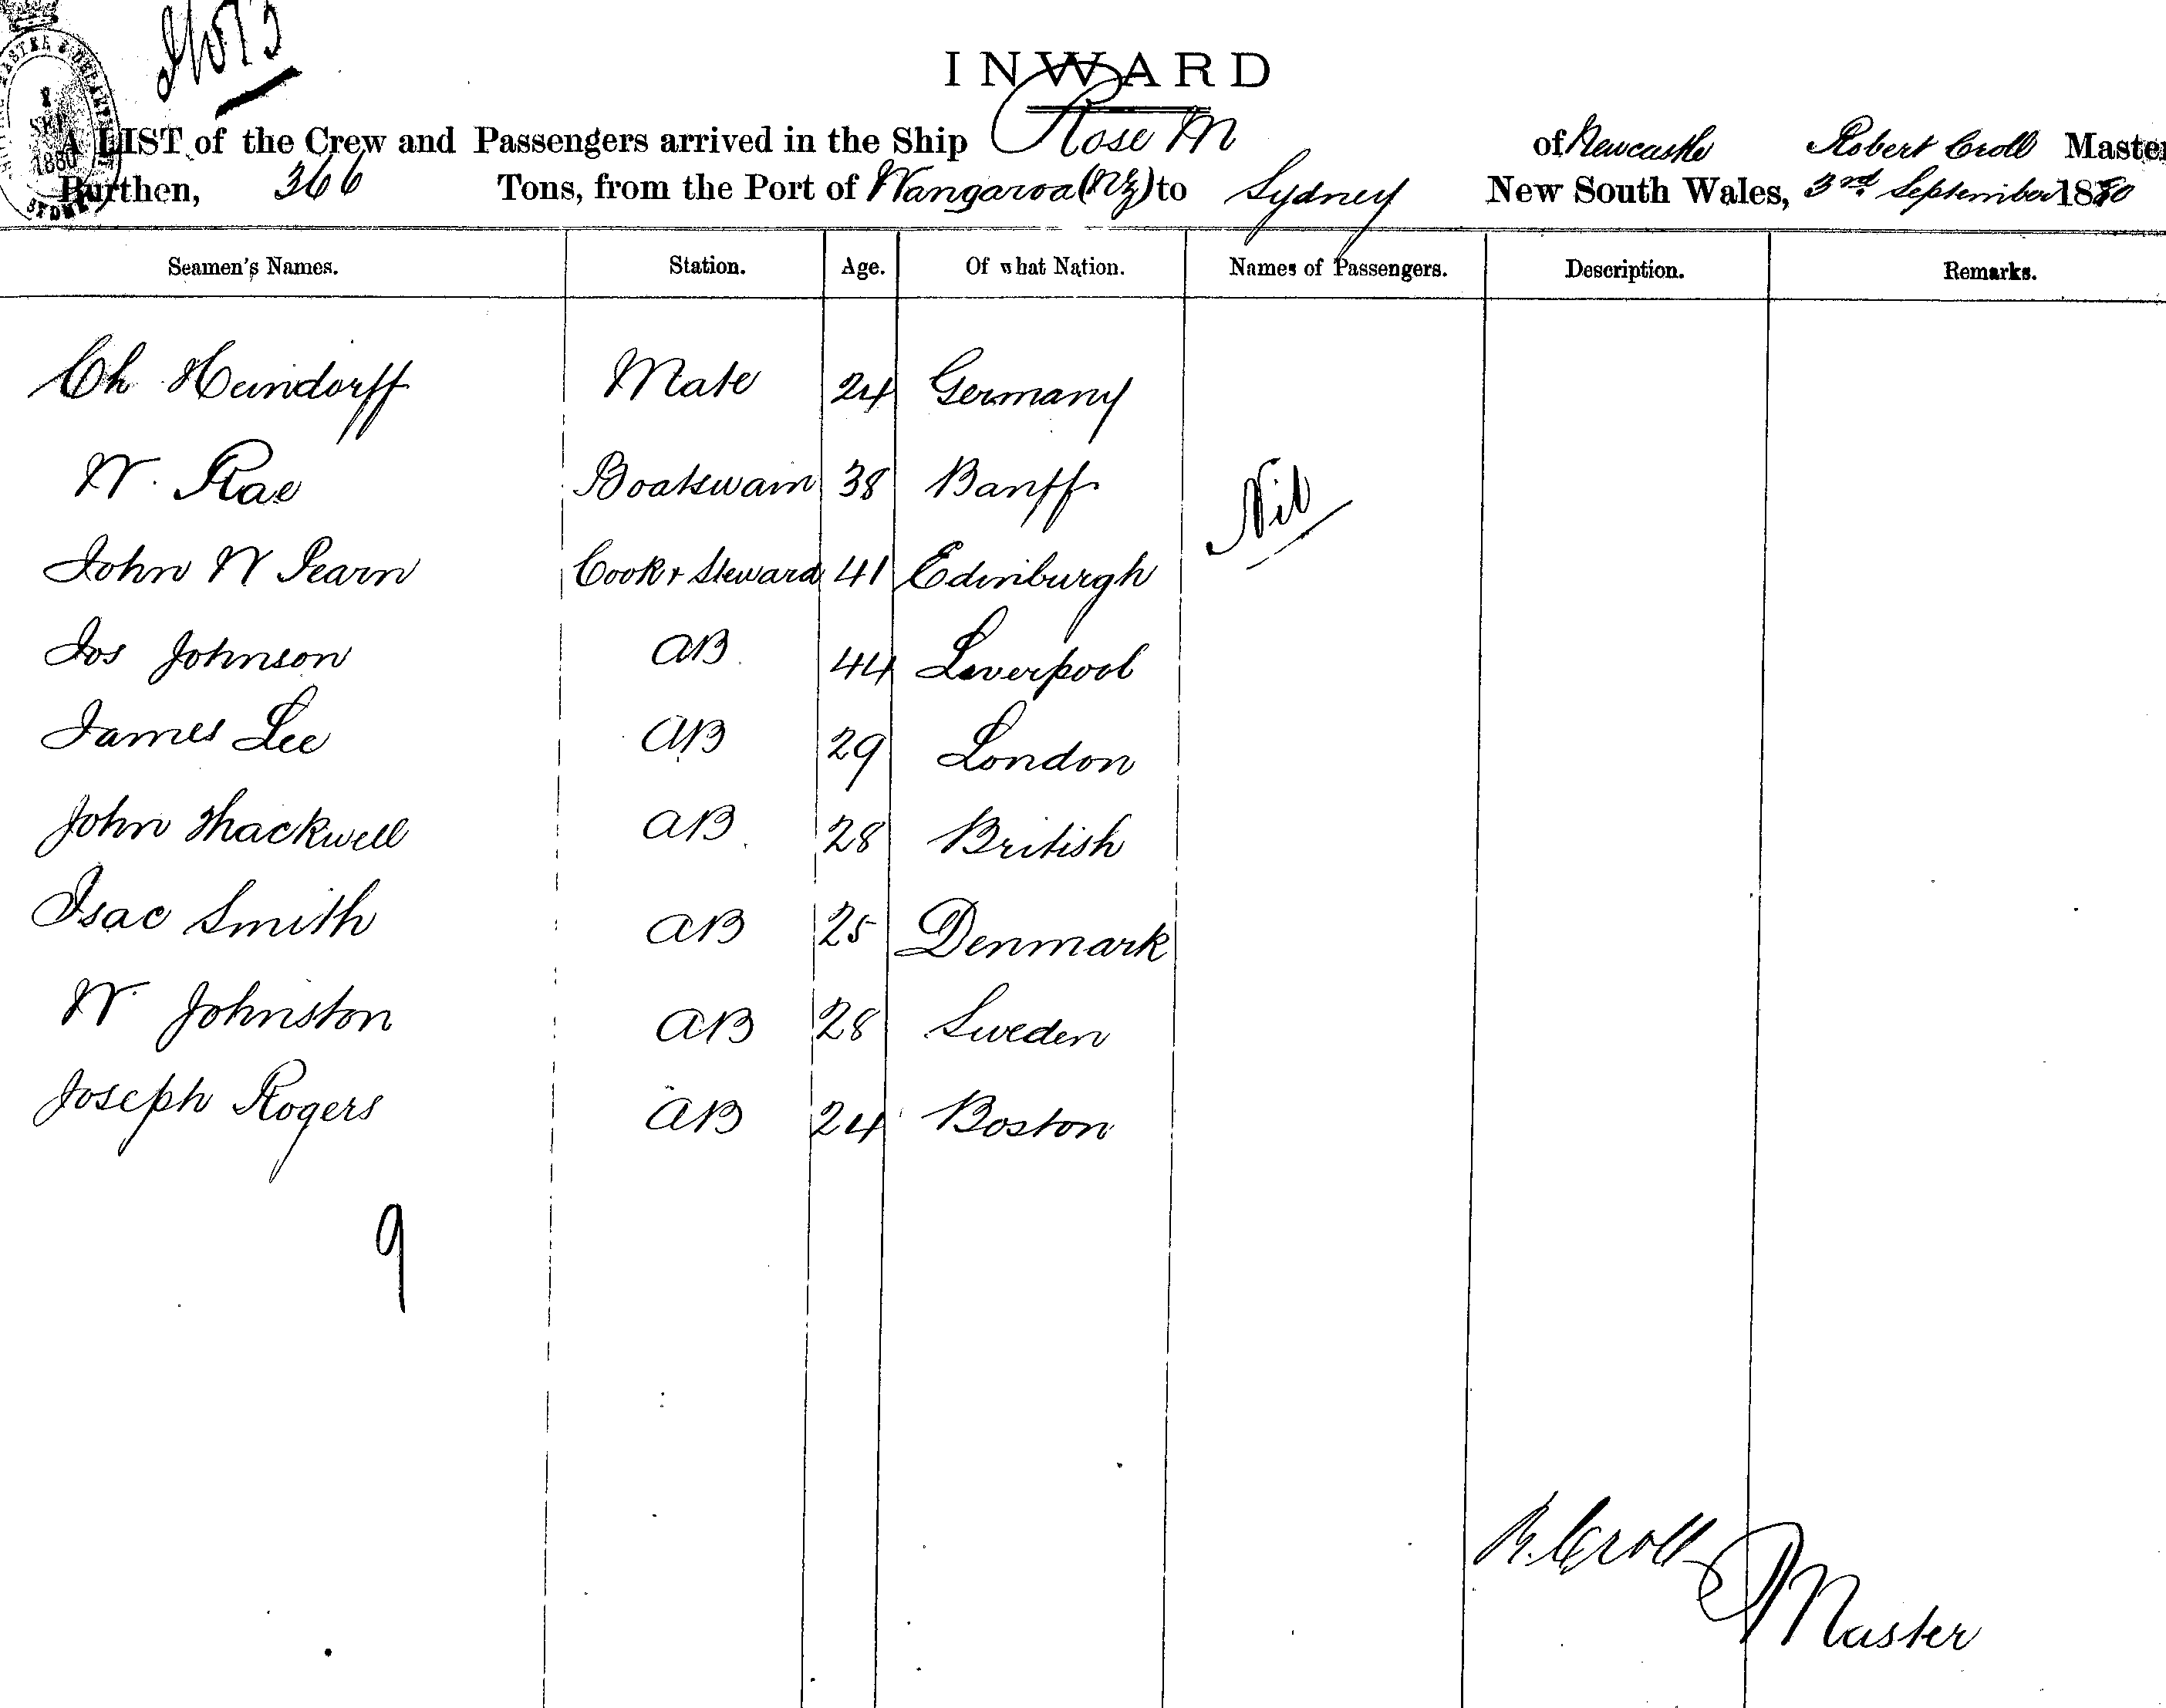 INWARD
A LIST of the Crew and Passengers arrived in the Ship Rose M of Newcastle Robert Croll Master
Burthen, 366 Tons, from the Port of Wangaroa (NZ) to Sydney New South Wales, 3rd September 1880
Seamen's Names. Station. Age. Of what Nation. Names of Passengers. Description. Remarks.
Ch Heindorff Mate 24 Germany
W. Rae Boatswain 38 Banff
Nil
John W Pearn Cook + Steward 41 Edinburgh
Jos Johnson AB 44 Liverpool
James Lee AB 29 London
John Thackwell AB 28 British
Isac Smith AB 25 Denmark
W Johnston AB 28 Sweden
Joseph Rogers AB 24 Boston
9
R. Croll
Master